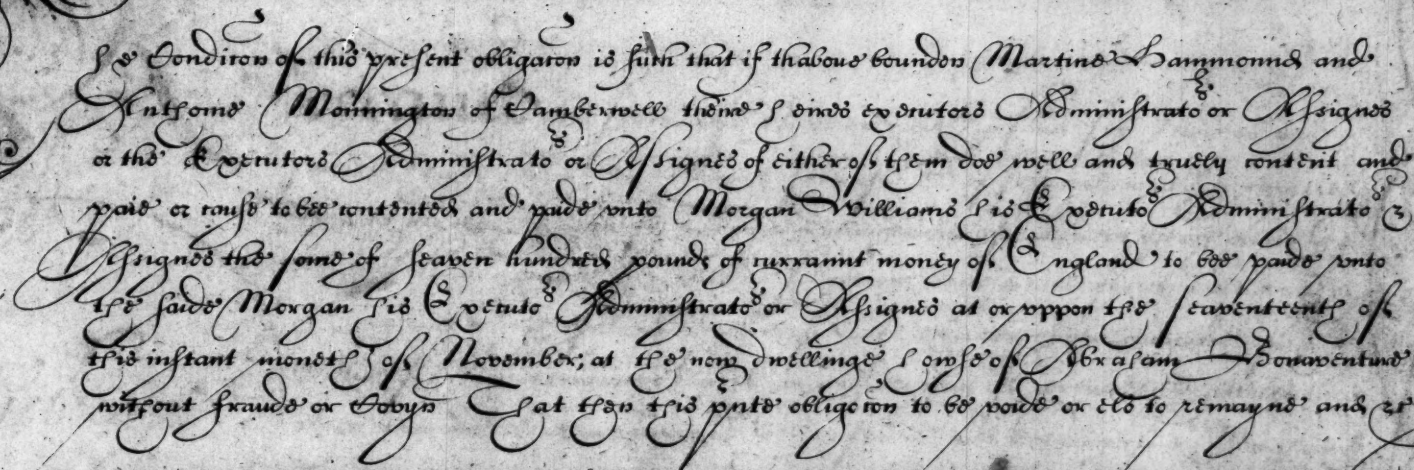 he Condicon of this present obligacon is such that if thabove bounden Martine Hammonnd and
Anthonie Monnington of Camberwell theire heires executors Administrators or Assignes
or the Executors Administrators or Assignes of either of them doe well and truely content and
paie or cause to bee contented and paide vnto Morgan Williams his Executors Administrators &
Assignes the some of seaven hundred pounds of currannt money of England to bee paide vnto
the saide Morgan his Executors Administrators or Assignes at or vppon the seaventeenth of
this instant moneth of November, at the now dwellinge howse of Abraham Bonaventure
without fraude or Covyn That then this pnte obligacon to be voide or els to remayne and &c